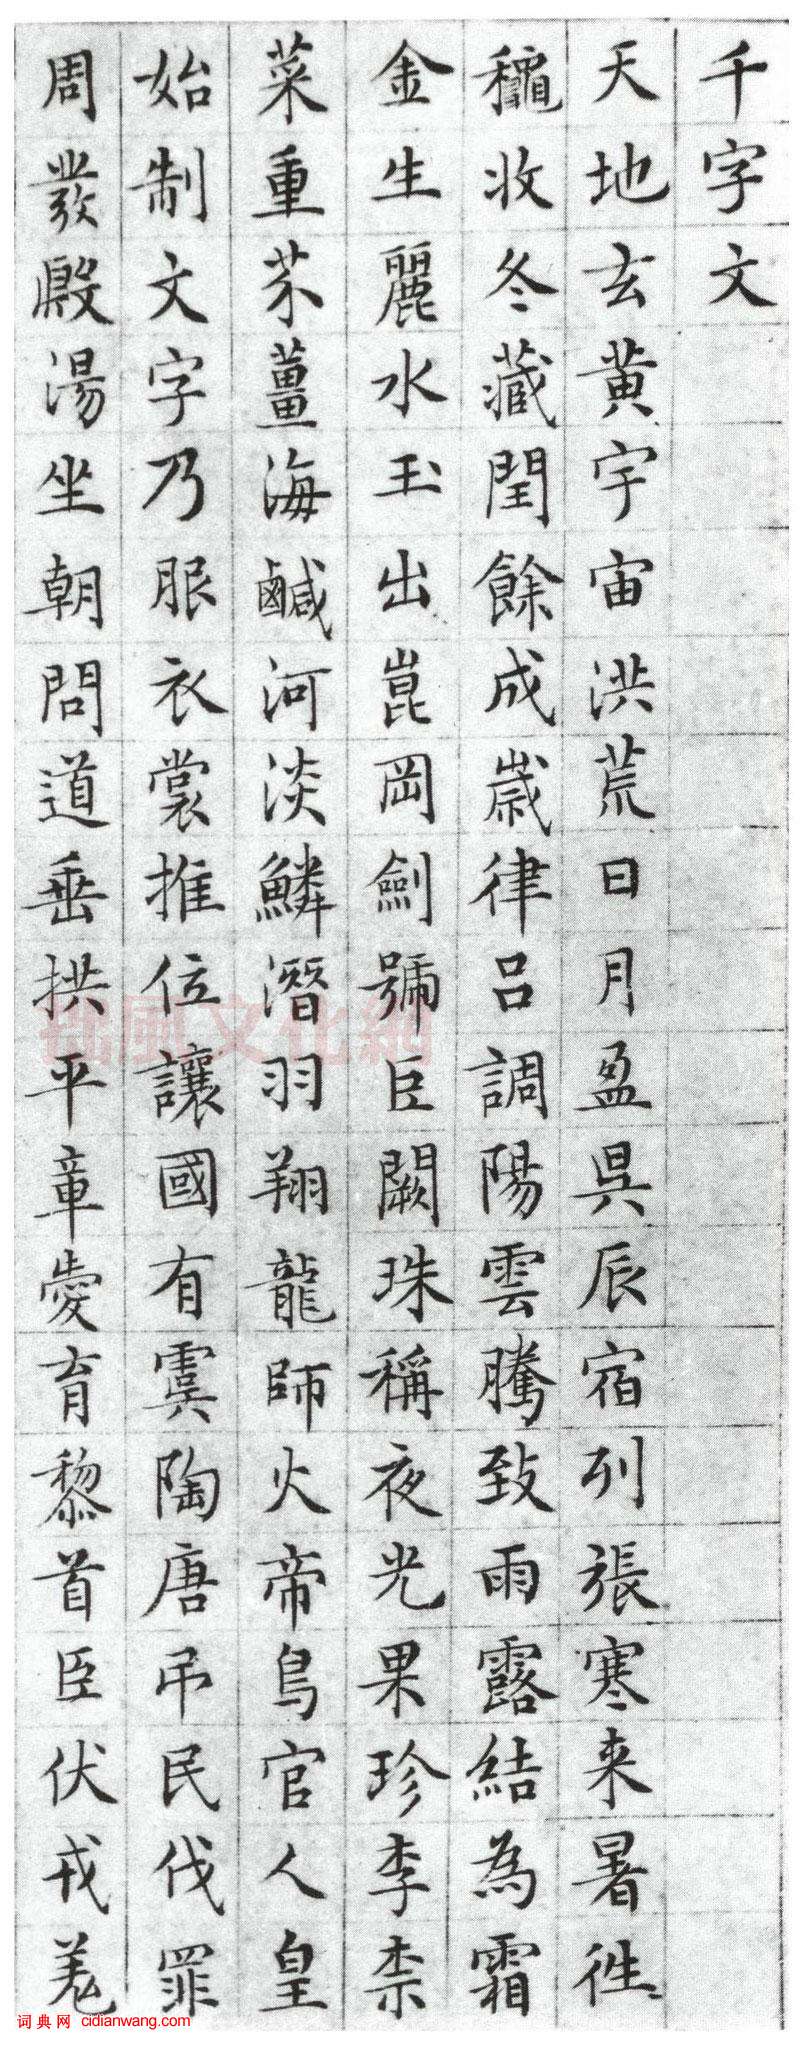 千字文
天地玄黃宇宙洪荒日月盈昃辰宿列張寒来暑往
龝收冬藏閏餘成歲律吕調陽雲騰致雨露結為霜
金生麗水玉出崑岡劍號巨闕珠稱夜光果珍李柰
菜重芥薑海鹹河淡鱗潛羽翔龍師火帝鳥官人皇
始制文字乃服衣裳推位讓國有虞陶唐弔民伐罪
周發殷湯坐朝問道垂拱平章愛育黎首臣伏戎羗
词典网 cidianwang.com